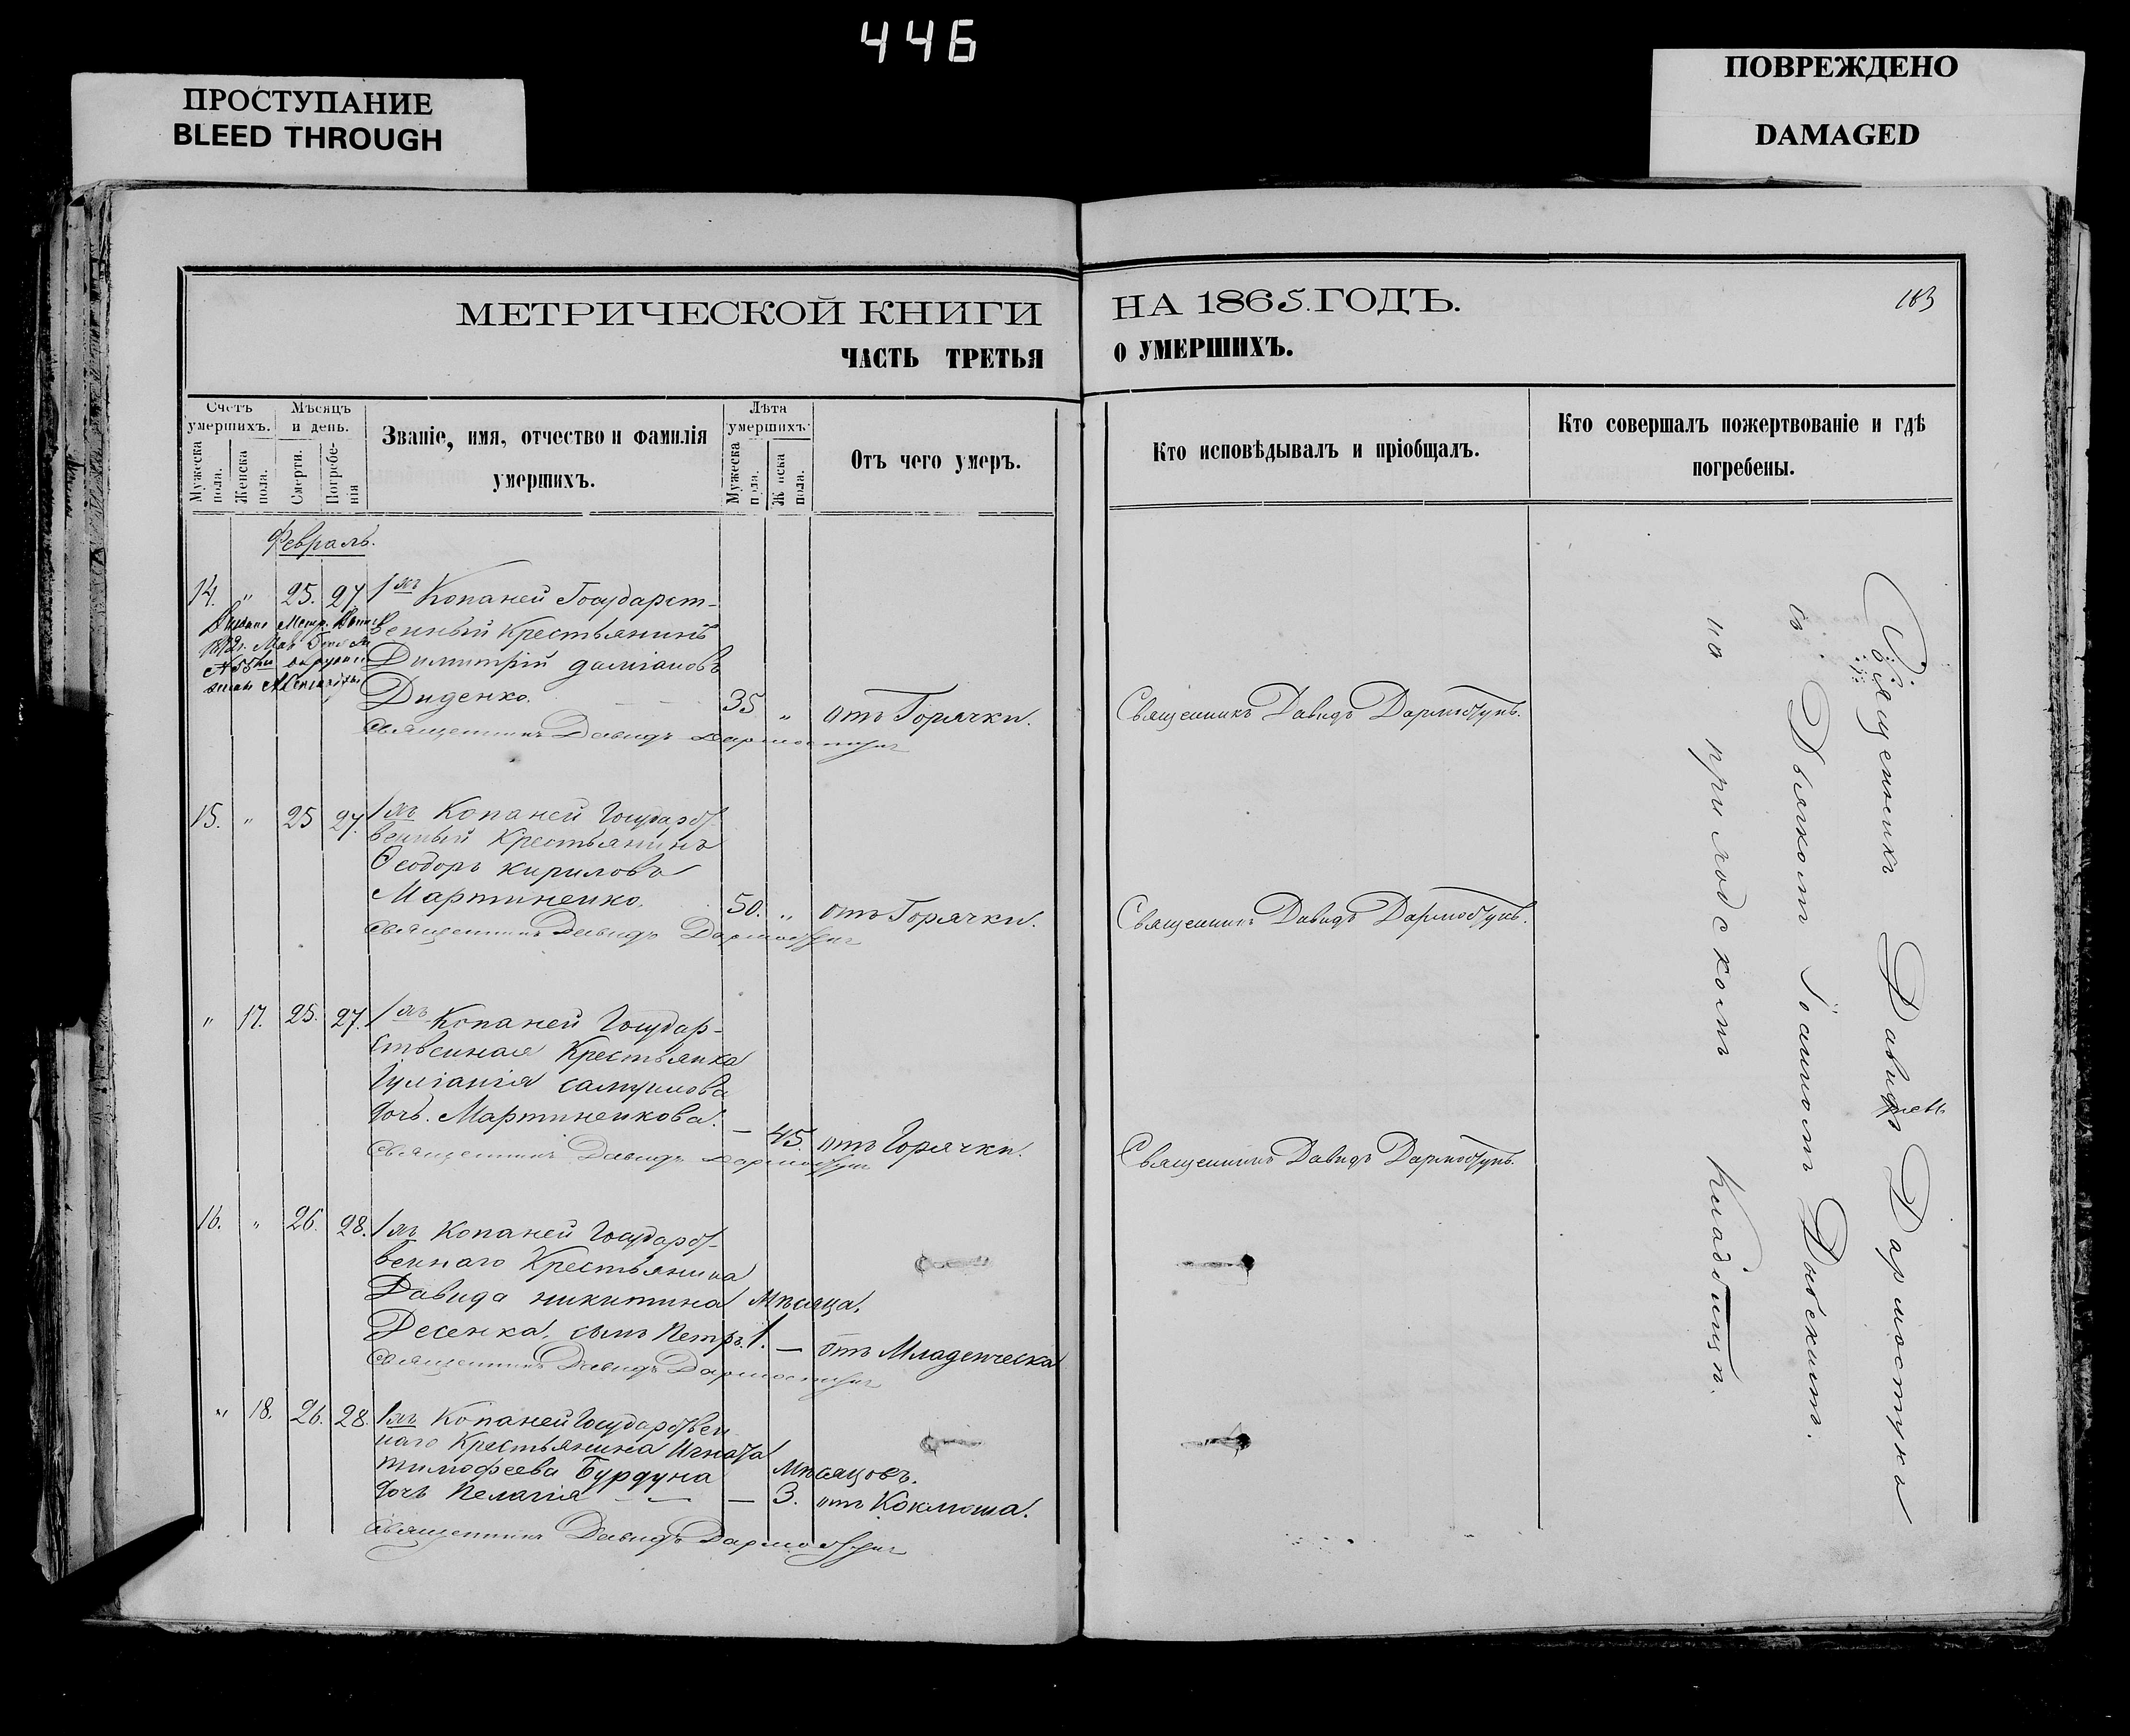 446
ПРОСТУПАНИЕ
BLEED THROUGH
ПОВРЕЖДЕНО
DAMAGED
МЕТРИЧЕСКОЙ КНИГИ
НА 1865. ГОДЪ.
183
ЧАСТЬ ТРЕТЬЯ
О УМЕРШИХЪ.
Счетъ умершихъ.
Мужеска пола.
Женска пола.
Мѣсяцъ и день.
Смерти.
Погребенія
Званіе, имя, отчество и фамилія
умершихъ.
Лѣта умершихъ
Мужеска пола.
Женска пола.
Отъ чего умеръ.
Кто исповѣдывалъ и пріобщалъ.
Кто совершалъ пожертвованіе и гдѣ
погребены.
Февраль.
14. " 25. 27 1хъ Копаней Государст-
венный Крестьянинъ
Димитрій даміановъ
Диденко. 35 " отъ Горячки. Священникъ Давидъ Дармостукъ.
Священникъ Давидъ Дармостукъ
15. " 25 27. 1хъ Копаней Государст
венный Крестьянинъ
Ѳеодоръ кириловъ
Мартиненко. 50. " отъ Горячки. Священникъ Давидъ Дармостукъ.
Священникъ Давидъ Дармостукъ
" 17. 25. 27. 1хъ Копаней Государ-
ственная Крестьянка
Іуліанія самуилова
дочь. Мартиненкова. — 45. отъ Горячки. Священникъ Давидъ Дармостукъ.
Священникъ Давидъ Дармостукъ
16. " 26. 28. 1хъ Копаней Государст-
веннаго Крестьянина
Давида никитина Мѣсяца.
Десенка, сынъ Петръ. 1. — отъ Младенческа
Священникъ Давидъ Дармостукъ
" 18. 26. 28. 1хъ Копаней Государствен
наго Крестьянина Игната
тимофеева Бурдуна Мѣсяцовъ.
дочь Пелагія — — 3. отъ Коклюша.
Священникъ Давидъ Дармостукъ
Священникъ Давидъ Дармостукъ
съ Дьячкомъ Іоанномъ
на приходскомъ Кладбищѣ.